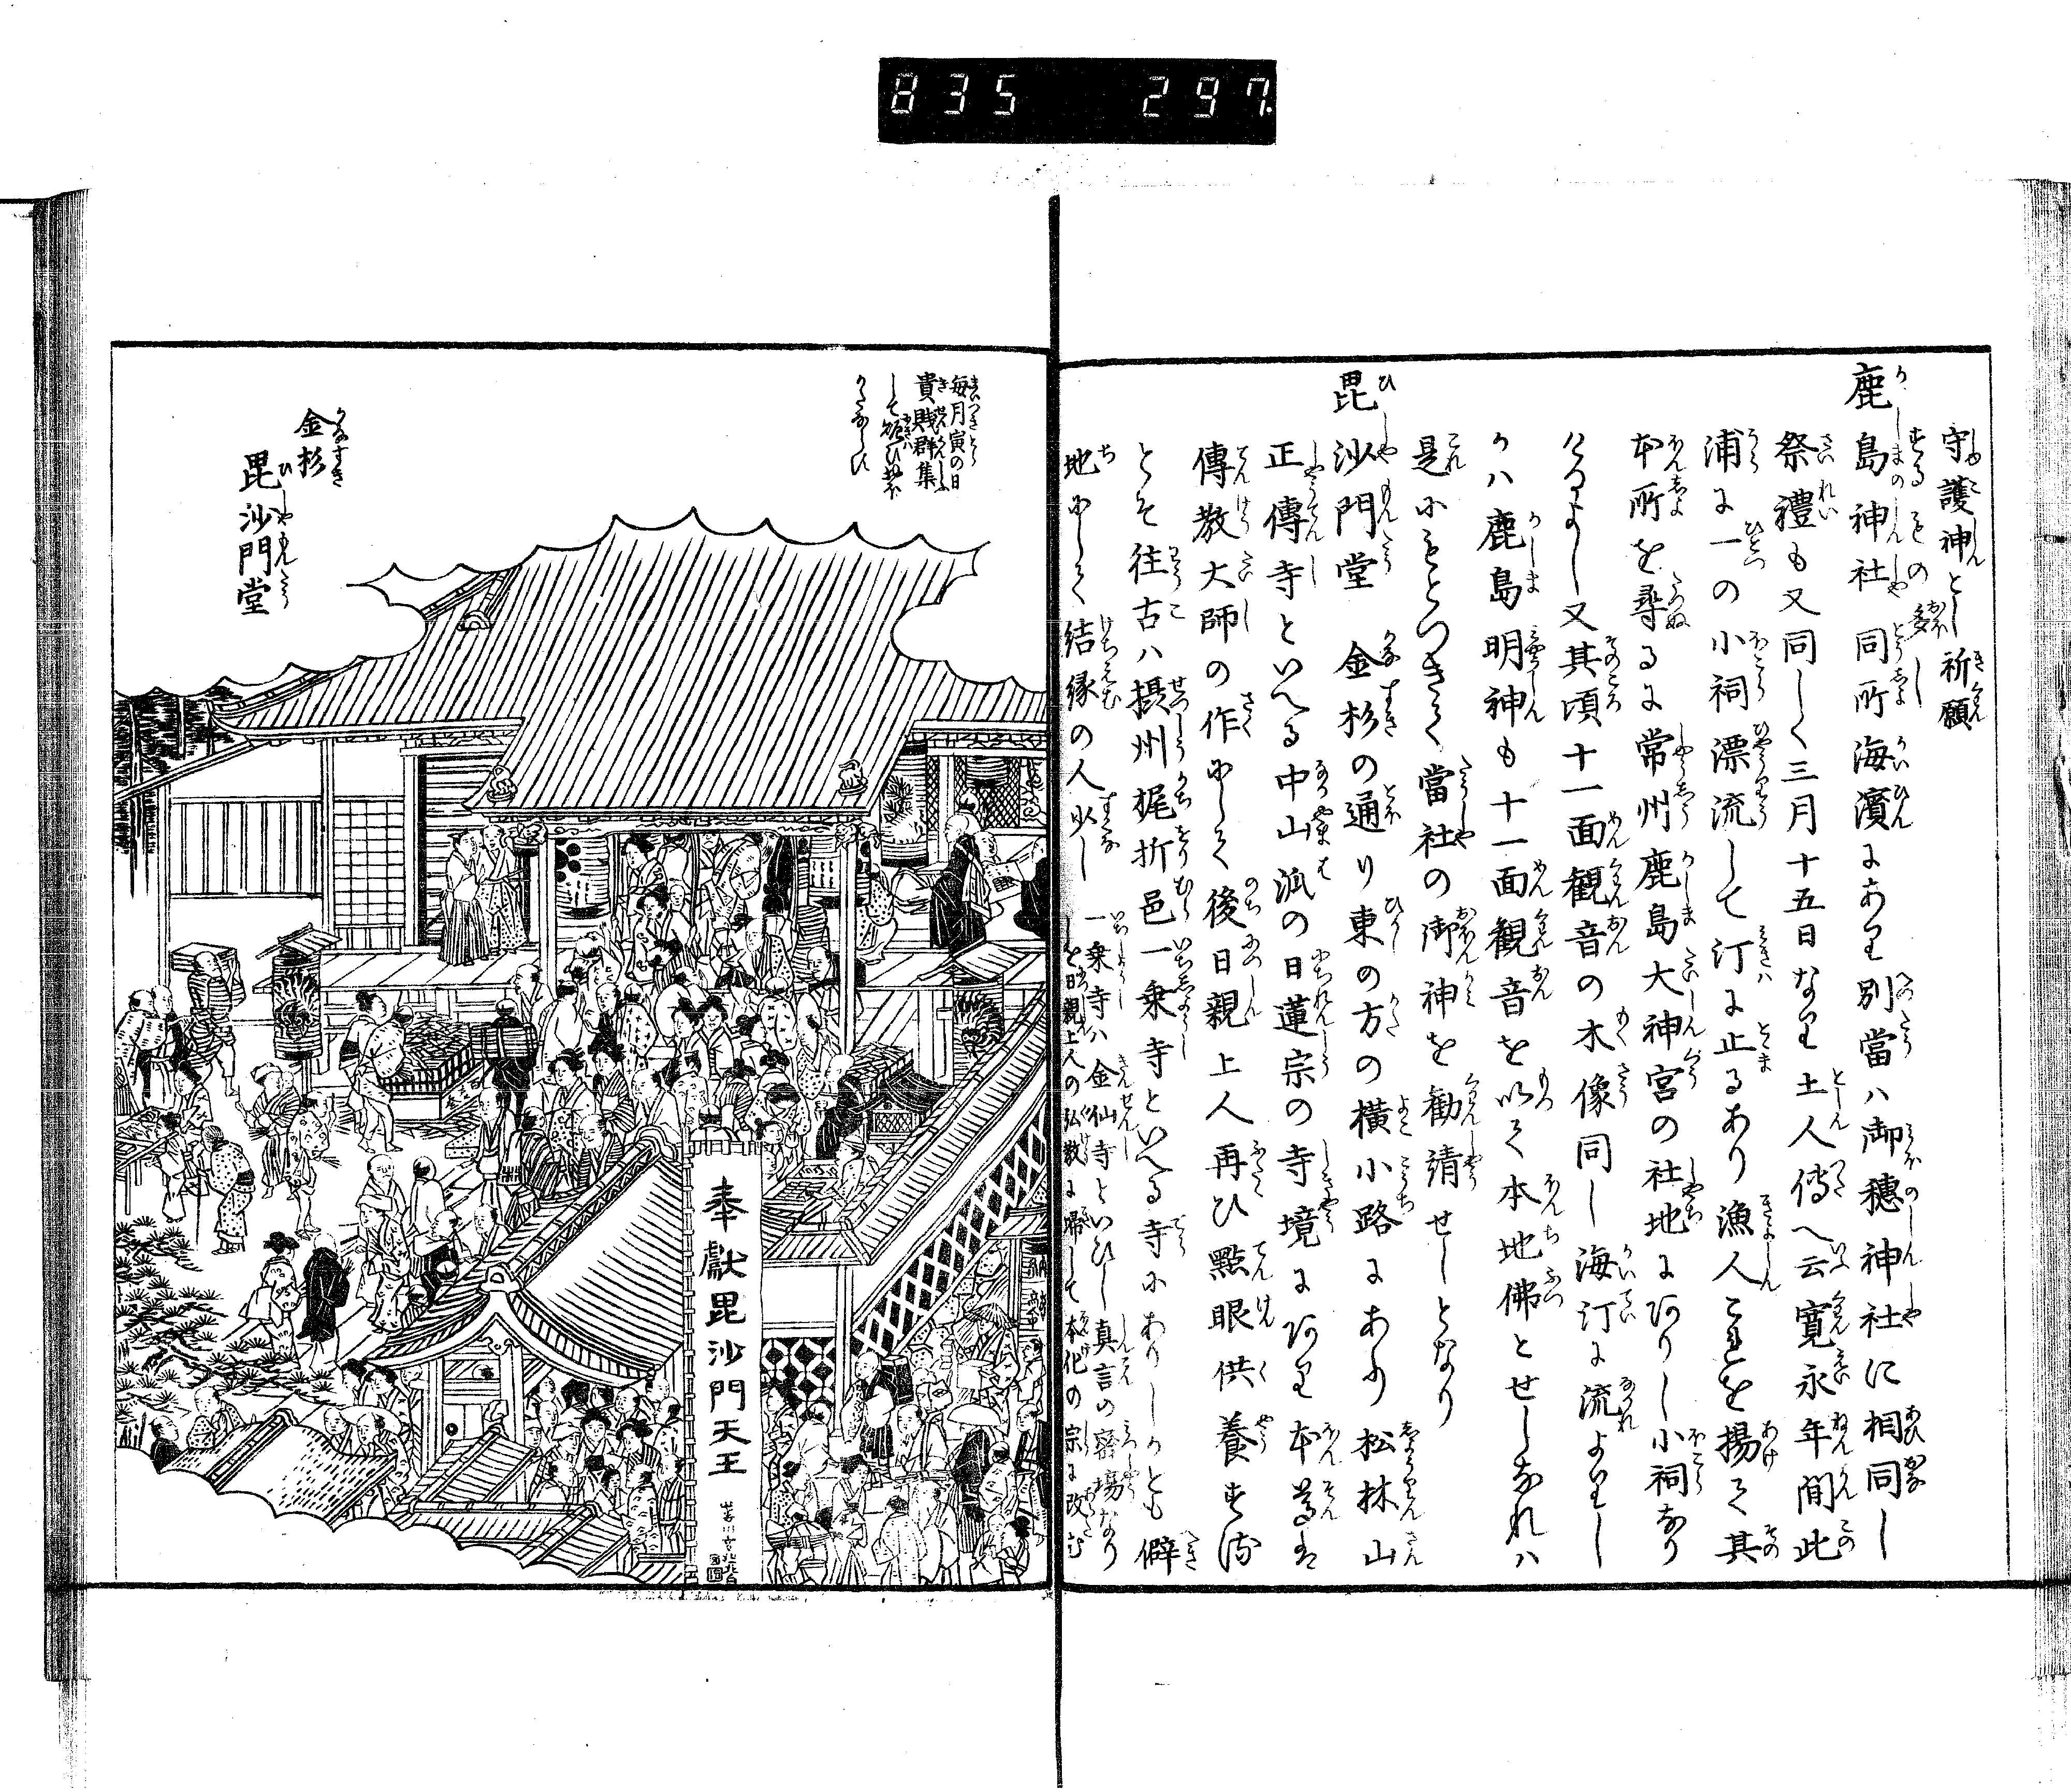 835 297
守護神とし祈願
するもの多し
鹿島神社 同所海濱にあり別當ハ御穂神社に相同し
祭禮も又同しく三月十五日なり土人傳へ云寛永年間此
浦に一の小祠漂流して汀に止るあり漁人これを揚て其
本所を尋るに常州鹿島大神宮の社地にありし小祠なり
けるよし又其頃十一面観音の木像同し海汀に流よりし
かハ鹿島明神も十一面観音を以て本地佛とせしなれハ
是にもとつきて當社の御神を勧請せしとなり
毘沙門堂 金杉の通り東の方の横小路にあり松林山
正傳寺といへる中山派の日蓮宗の寺境にあり本尊は
傳教大師の作にして後日親上人再ひ點眼供養す
とそ往古ハ摂州梶折邑一乗寺といへる寺にありしかとも僻
地にして結縁の人少し
一乗寺ハ金仙寺といひし真言の密場なり
しを日親上人の弘教に帰して本化の宗に改む
毎月寅の日
貴賎群集
して賑ひ
金杉
毘沙門堂
奉獻毘沙門天王